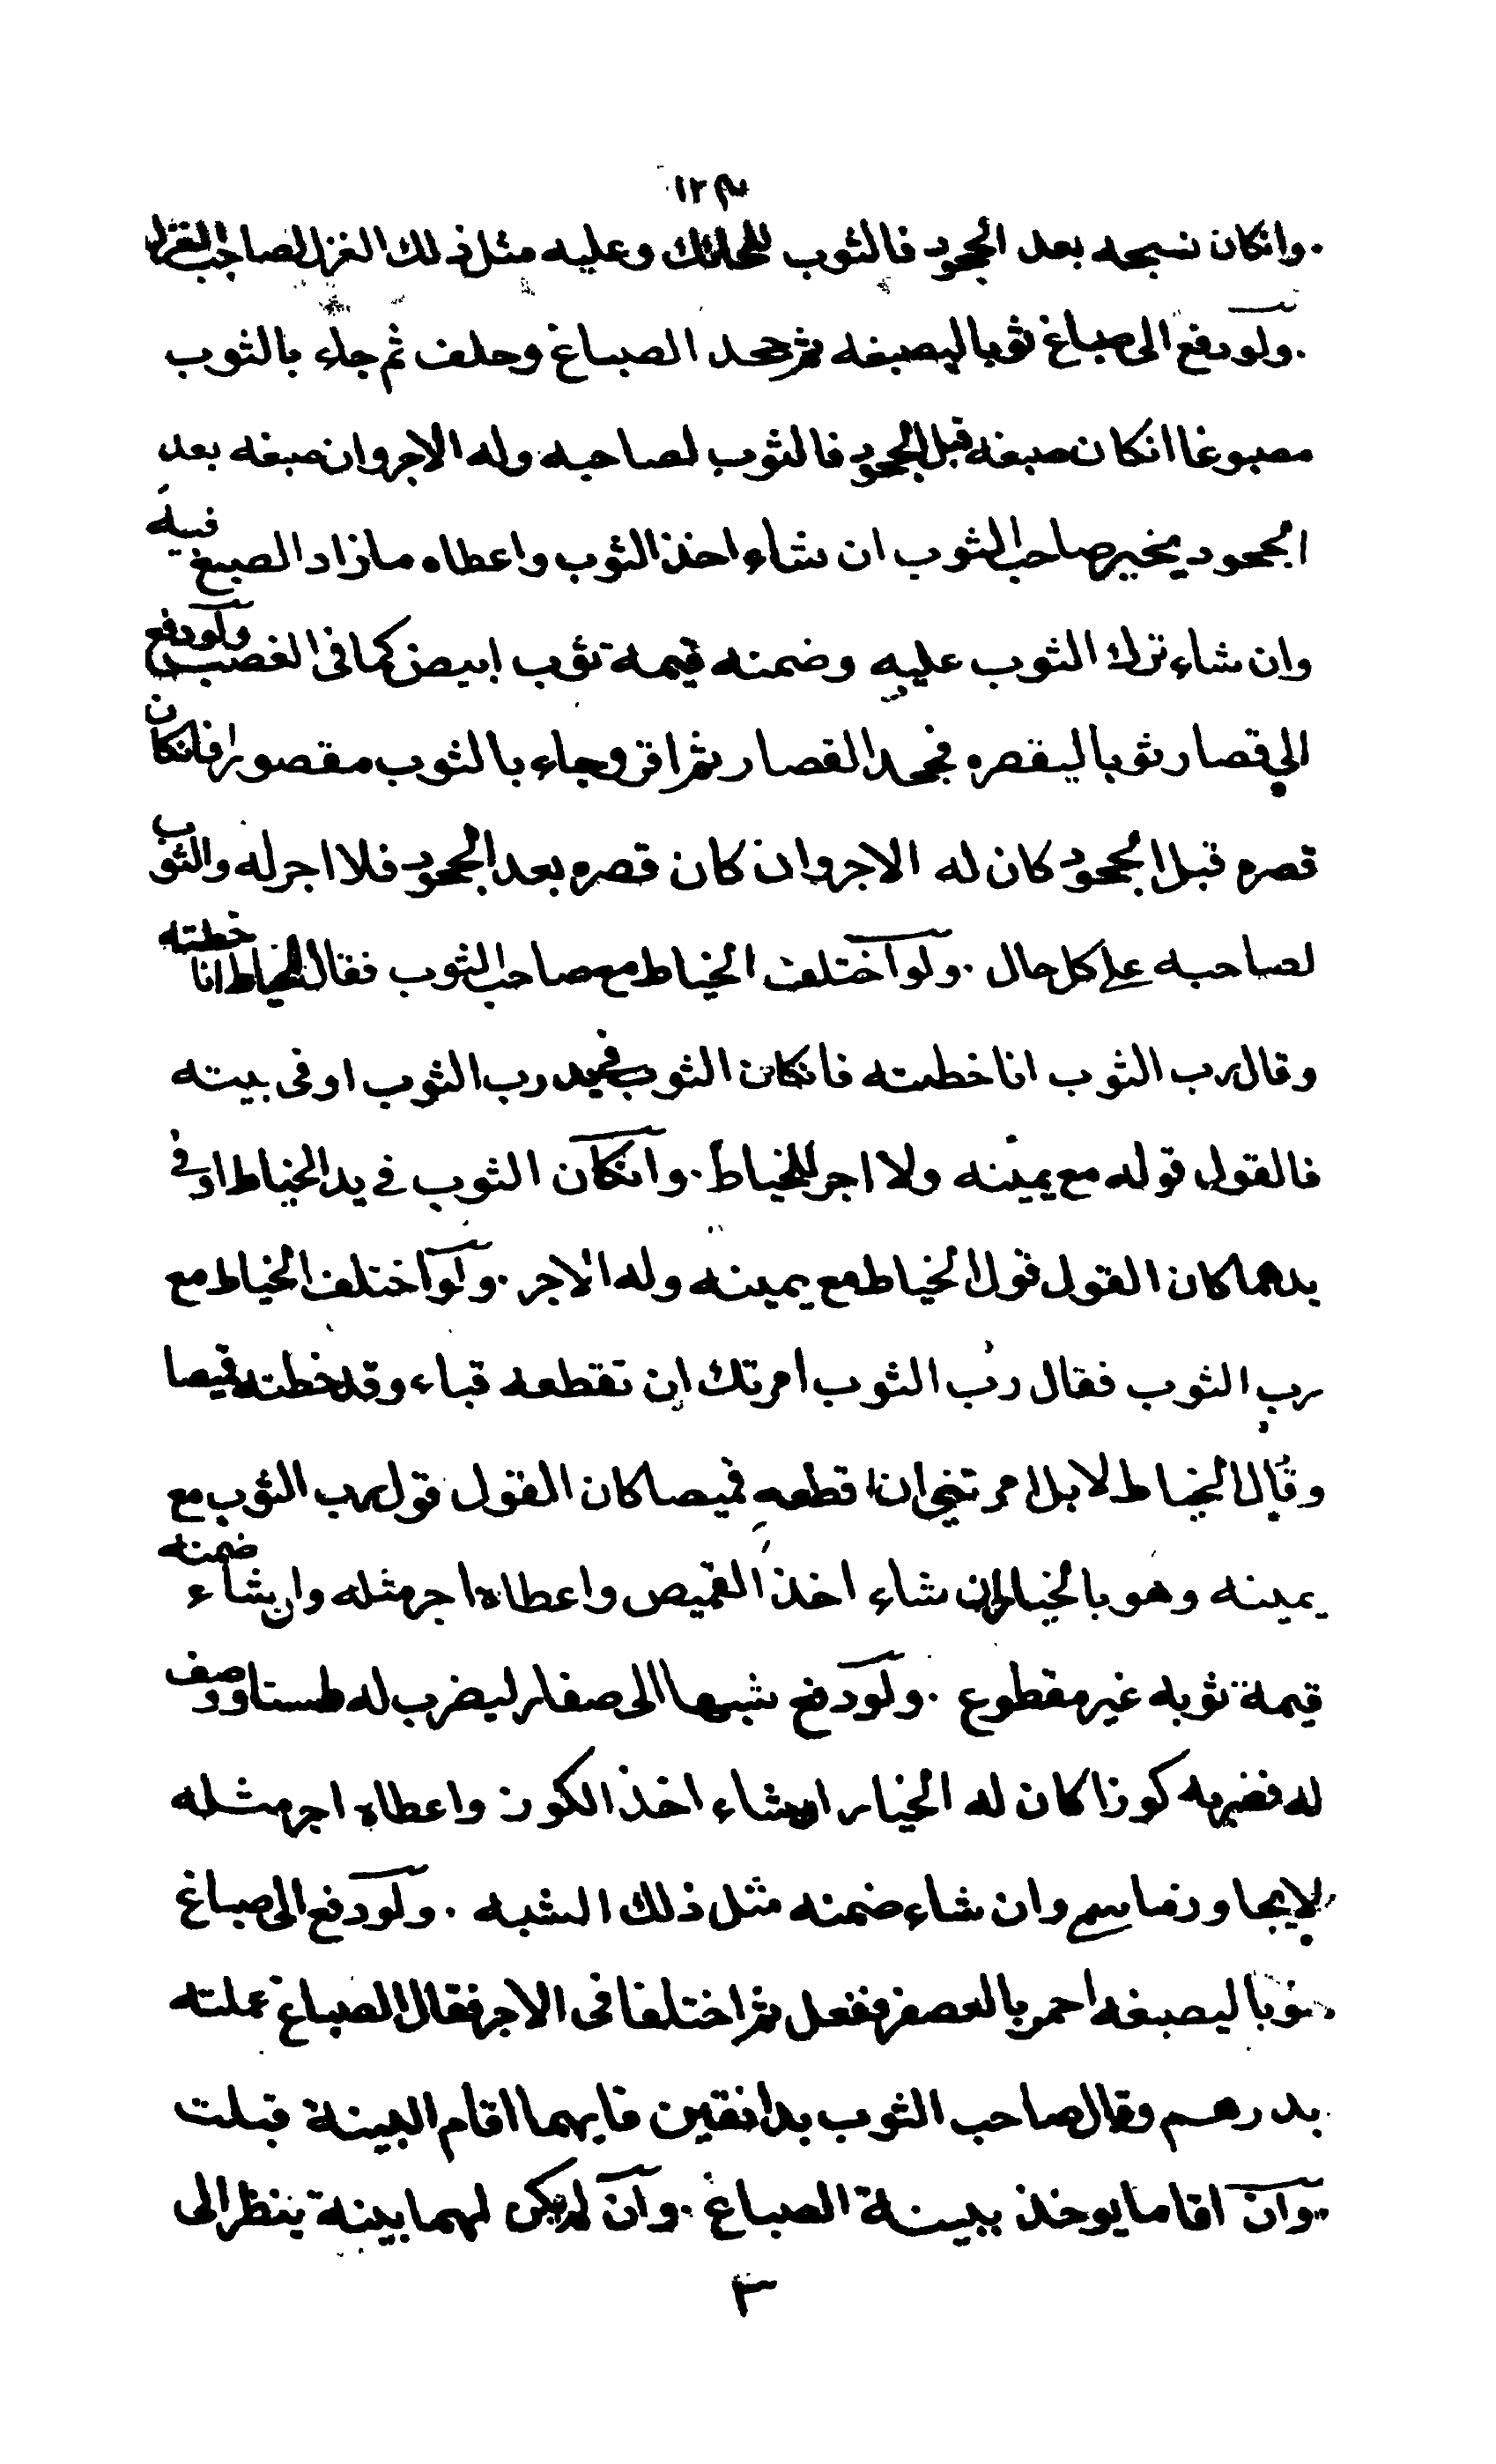 ١٢٣
وانكان نسجه بعد الجحود فالثوب للحائك وعليه مثل ذلك الغزل لصاحب الغزل
ولو دفع الى صباغ ثوبا ليصبغه ثم جحد الصباغ وحلف ثم جاء بالثوب
مصبوغا انكان صبغه قبل الجحود فالثوب لصاحبه وله الاجر وان صبغه بعد
الجحود يخير صاحب الثوب ان شاء اخذ الثوب واعطاه ما زاد الصبغ فيه
وان شاء ترك الثوب عليه وضمنه قيمة ثوب ابيض كما فى الغصب ولو دفع
الى قصار ثوبا ليقصره فجحد القصار ثم اقر وجاء بالثوب مقصورا فانكان
قصره قبل الجحود كان له الاجر وان كان قصره بعد الجحود فلا اجر له والثوب
لصاحبه على كل حال . ولو اختلف الخياط مع صاحب الثوب فقال الخياط انا خطته
وقال رب الثوب انا خطته فانكان الثوب فى يد رب الثوب او فى بيته
فالقول قوله مع يمينه ولا اجر للخياط . وانكان الثوب فى يد الخياط او فى
يدهما كان القول قول الخياط مع يمينه وله الاجر . ولو اختلف الخياط مع
رب الثوب فقال رب الثوب امرتك ان تقطعه قباء وقد خطته قميصا
وقال الخياط لا بل امرتنى ان اقطعه قميصا كان القول قول رب الثوب مع
يمينه وهو بالخيار ان شاء اخذ القميص واعطاه اجر مثله وان شاء ضمنه
قيمة ثوبه غير مقطوع . ولو دفع شبها الى صفار ليضرب له طستا ووصف
له فضربه كوزا كان له الخيار ان شاء اخذ الكوز واعطاه اجر مثله
لا يجاوز ما سمى وان شاء ضمنه مثل ذلك الشبه . ولو دفع الى صباغ
ثوبا ليصبغه احمر بالعصفر ففعل ثم اختلفا فى الاجر فقال الصباغ عملته
بدرهم وقال صاحب الثوب بدانقين فايهما اقام البينة قبلت
وان اقاما يوخذ ببينة الصباغ . وان لم يكن لهما بينة ينظر الى